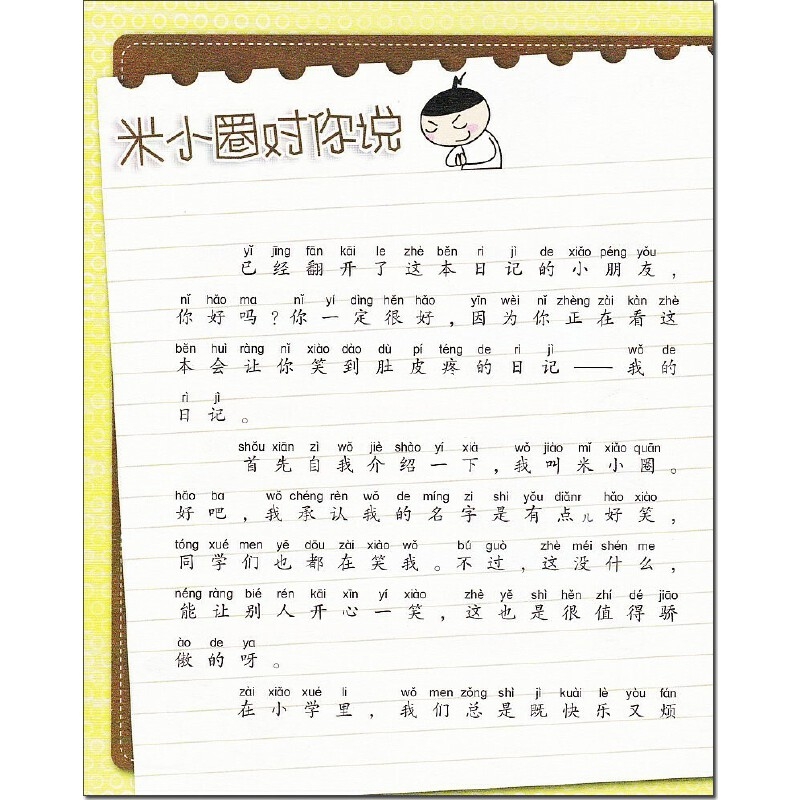 米小圈对你说
yǐ jīng fān kāi le zhè běn rì jì de xiǎo péng yǒu
已经翻开了这本日记的小朋友，
nǐ hǎo ma nǐ yí dìng hěn hǎo yīn wèi nǐ zhèng zài kàn zhè
你好吗？你一定很好，因为你正在看这
běn huì ràng nǐ xiào dào dù pí téng de rì jì wǒ de
本会让你笑到肚皮疼的日记——我的
rì jì
日记。
shǒu xiān zì wǒ jiè shào yí xià wǒ jiào mǐ xiǎo quān
首先自我介绍一下，我叫米小圈。
hǎo ba wǒ chéng rèn wǒ de míng zi shì yǒu diǎnr hǎo xiào
好吧，我承认我的名字是有点儿好笑，
tóng xué men yě dōu zài xiào wǒ bú guò zhè méi shén me
同学们也都在笑我。不过，这没什么，
néng ràng bié rén kāi xīn yí xiào zhè yě shì hěn zhí dé jiāo
能让别人开心一笑，这也是很值得骄
ào de ya
傲的呀。
zài xiǎo xué lǐ wǒ men zǒng shì jì kuài lè yòu fán
在小学里，我们总是既快乐又烦